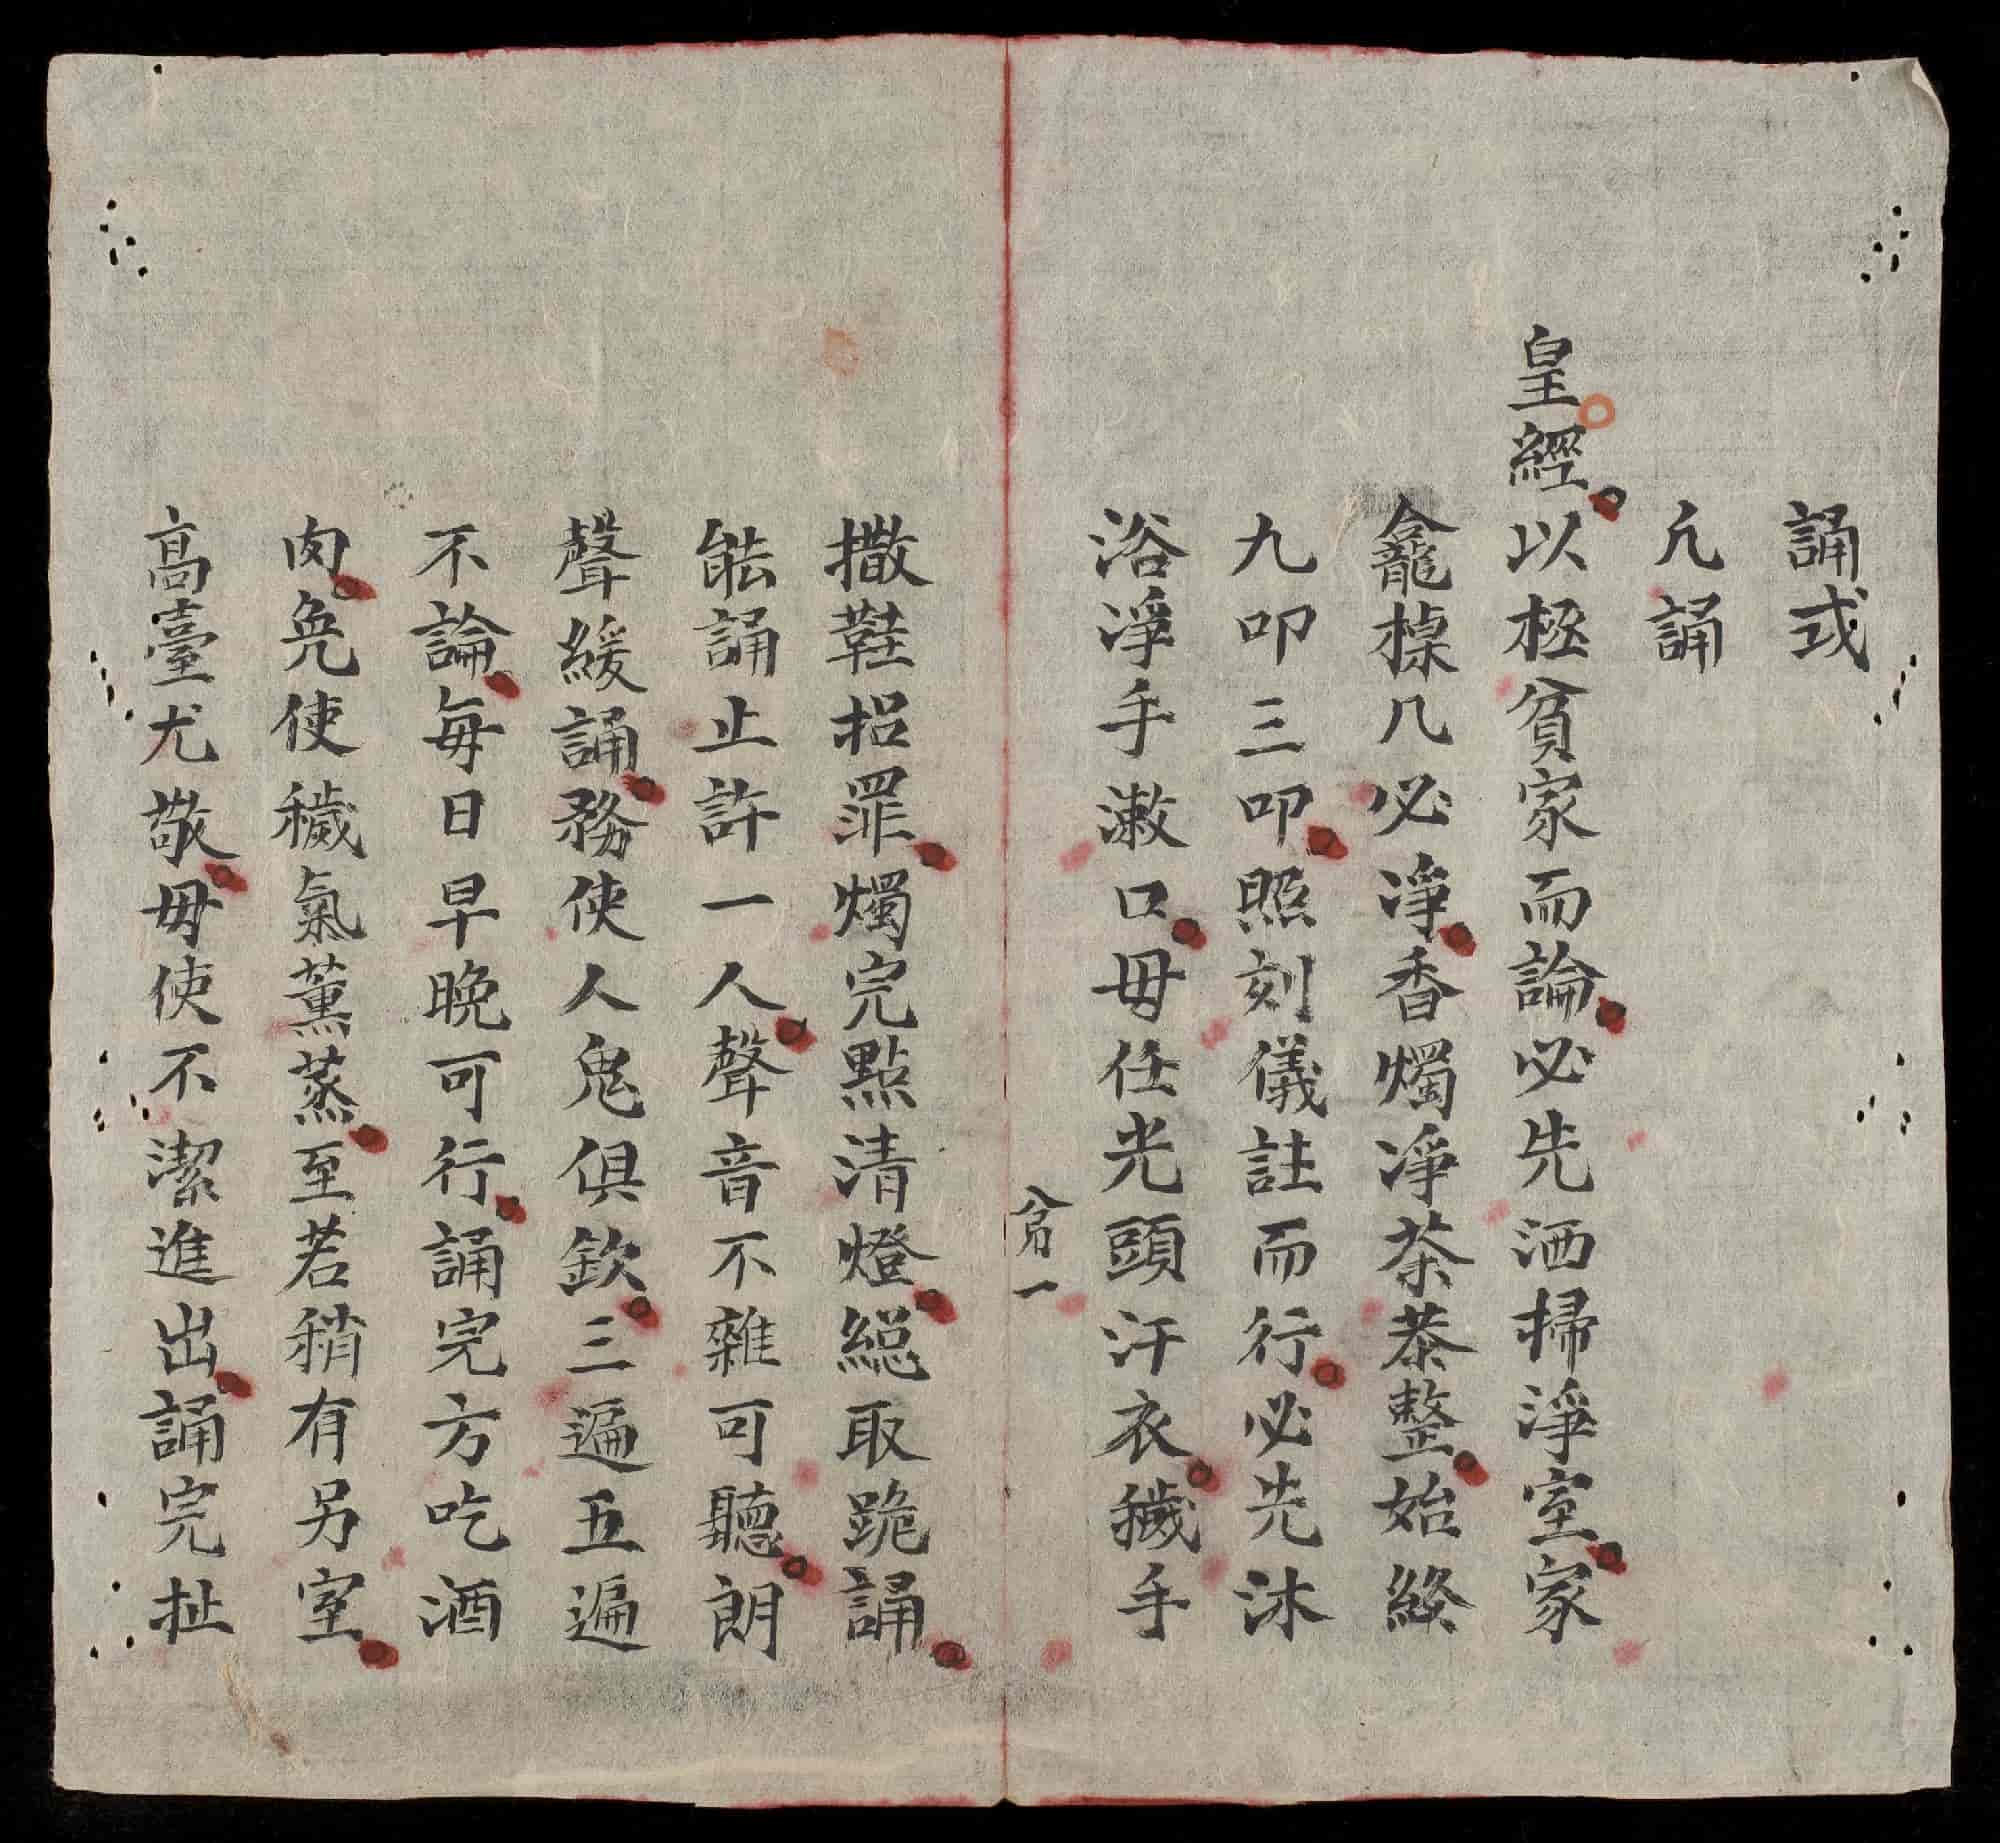 誦式
凢誦
皇經以極貧家而論必先洒掃淨室家
龕棹几必淨香燭淨茶恭整始終
九叩三叩照刻儀註而行必先沐
浴淨手漱口毋任光頭汗衣穢手
貧一
撒鞋招罪燭完點清燈總取跪誦
能誦止許一人聲音不雜可聽朗
聲緩誦務使人鬼俱欽三遍五遍
不論每日早晚可行誦完方吃酒
肉免使穢氣薰蒸至若稍有另室
高臺尤敬毋使不潔進出誦完扯